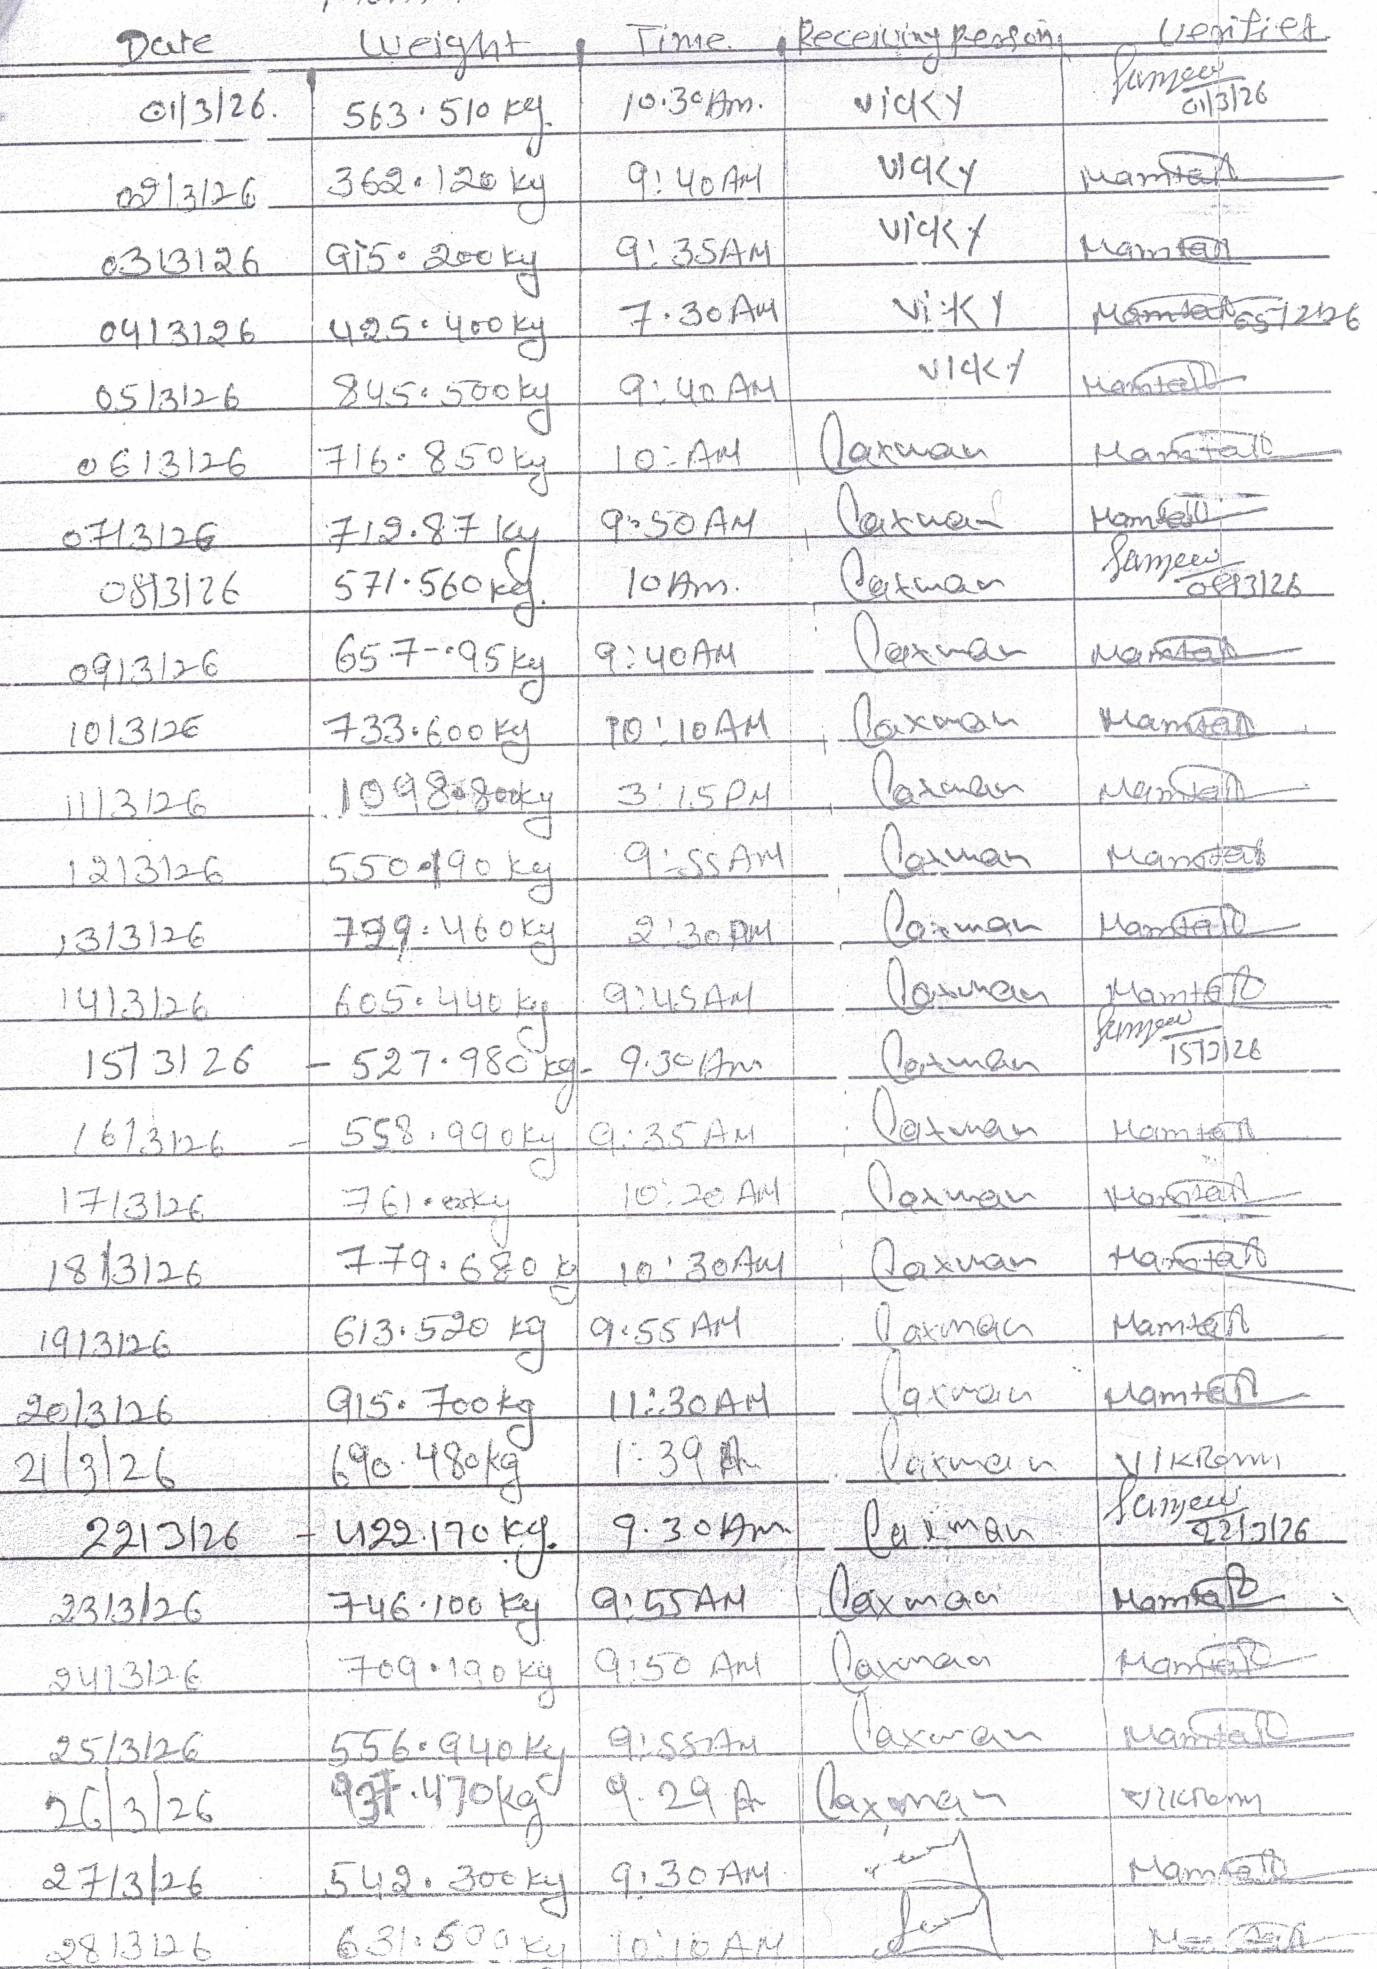 Date Weight Time Receiving person verified
01/3/26. 563.510 kg. 10.30 Am. vicky Sanjeev 01/3/26
02/3/26 362.120 kg 9:40 AM vicky Mamta
03/3/26 915.200 kg 9:35 AM vicky Mamta
04/3/26 425.400 kg 7.30 AM vicky Mamta 05/2/26
05/3/26 845.500 kg 9:40 AM vicky Mamta
06/3/26 716.850 kg 10: AM Laxman Mamta
07/3/26 712.87 kg 9:50 AM Laxman Mamta
08/3/26 571.560 kg. 10 Am. Laxman Sanjeev 08/3/26
09/3/26 657-.95 kg 9:40 AM Laxman Mamta
10/3/26 733.600 kg 10:10 AM Laxman Mamta
11/3/26 1098.800 kg 3:15 PM Laxman Mamta
12/3/26 550.190 kg 9:55 AM Laxman Mamta
13/3/26 .460 kg 2:30 PM Laxman Mamta
14/3/26 605.440 kg 9:45 AM Laxman Mamta
15/3/26 - 527.980 kg - 9.30 Am Laxman Sanjeev 15/3/26
16/3/26 - 558.990 kg 9:35 AM Laxman Mamta
17/3/26 761.000 kg 10:20 AM Laxman Mamta
18/3/26 779.680 kg 10:30 AM Laxman Mamta
19/3/26 613.520 kg 9.55 AM Laxman Mamta
20/3/26 915.700 kg 11:30 AM Laxman Mamta
21/3/26 690.480 kg 1:39 Laxman VIKRam
22/3/26 - 422.170 kg. 9.30 Am Laxman Sanjeev 22/3/26
23/3/26 746.100 kg 9:55 AM Laxman Mamta
24/3/26 709.190 kg 9:50 AM Laxman Mamta
25/3/26 556.940 kg 9:55 AM Laxman Mamta
26/3/26 937.470 kg 9.29 Laxman VIKRam
27/3/26 542.300 kg 9:30 AM Mamta
28/3/26 631.500 kg 10:10 AM Mamta